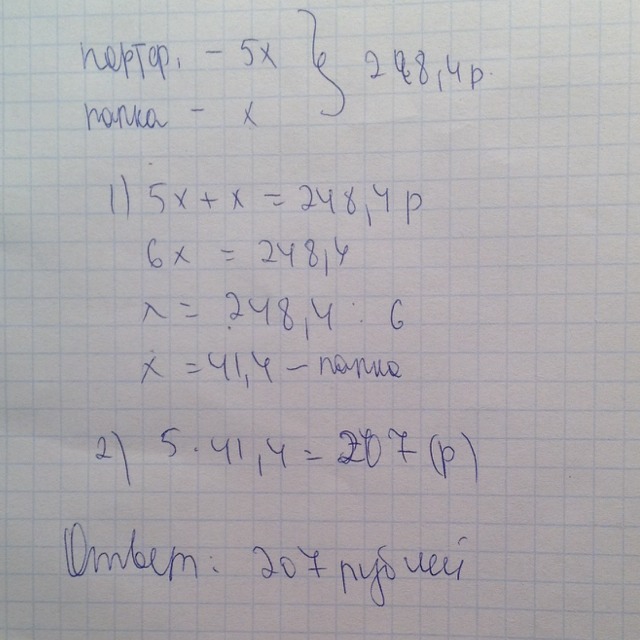 портф. - 5x } 248,4 р.
папка - x
1) 5x + x = 248,4 р
6x = 248,4
x = 248,4 : 6
x = 41,4 - папка
2) 5 · 41,4 = 207 (р)
Ответ: 207 рублей